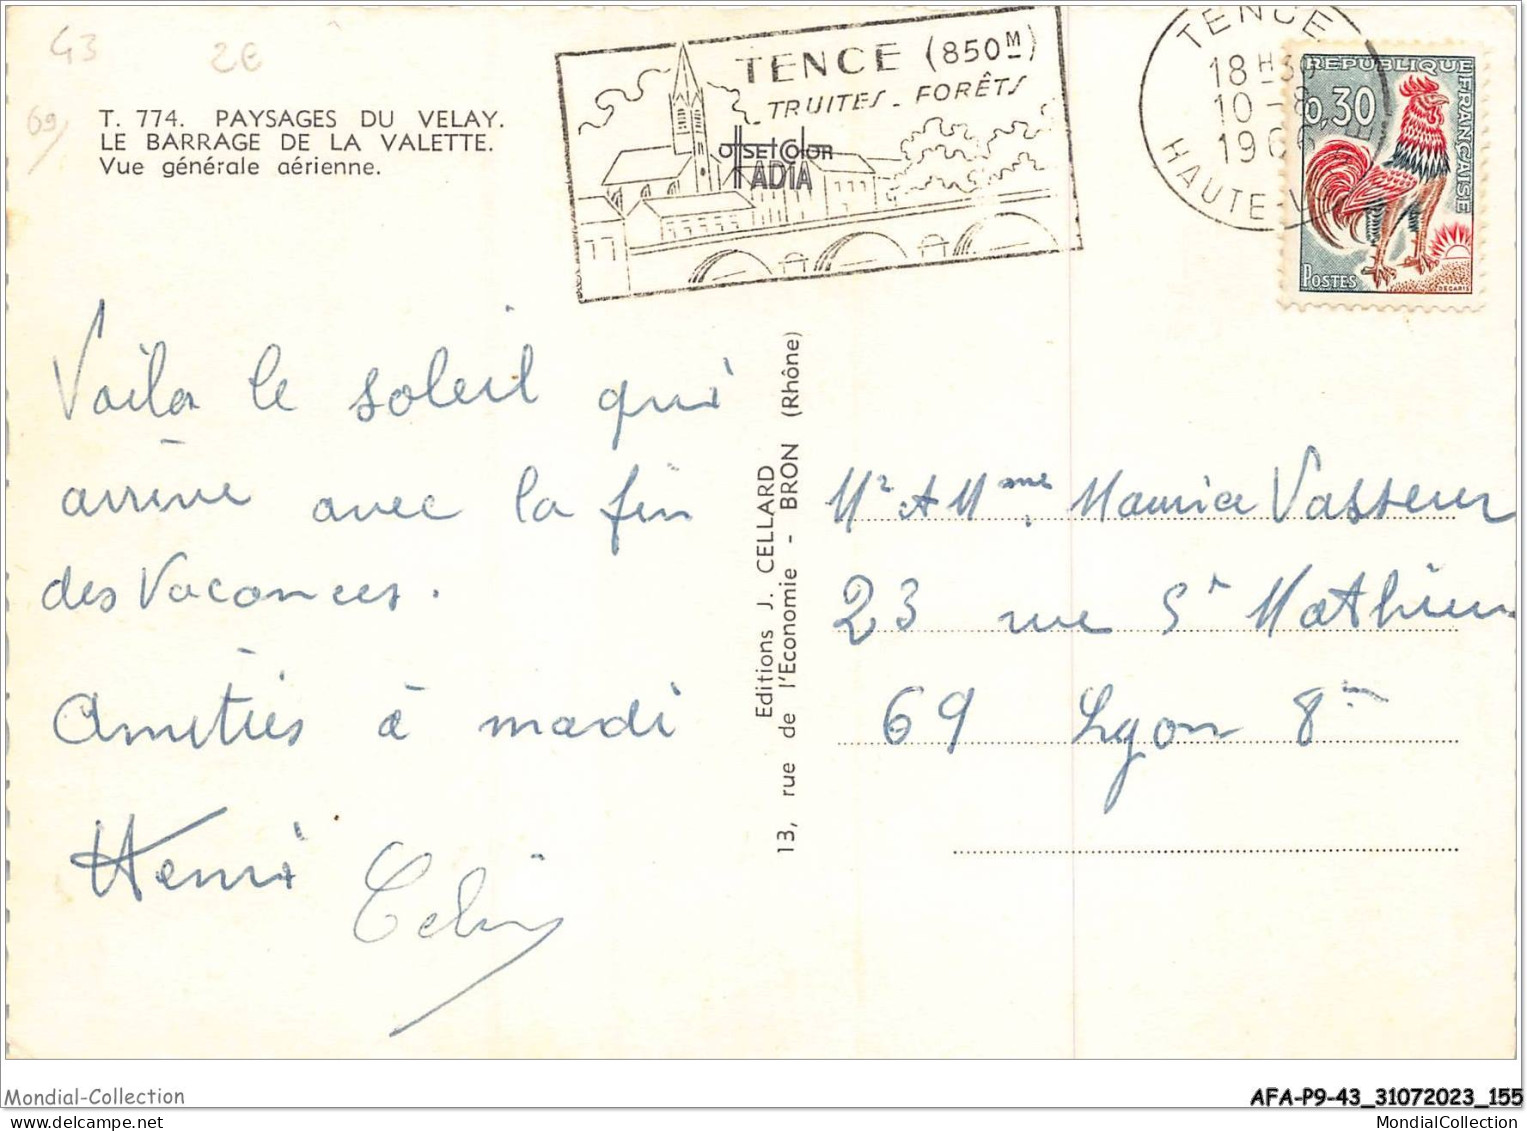 43
2€
69/
T. 774. PAYSAGES DU VELAY.
LE BARRAGE DE LA VALETTE.
Vue générale aérienne.
TENCE (850M)
TRUITES - FORÊTS
OffsetColor
RADIA
TENCE
18H30
10-8
1966
HAUTE-
RÉPUBLIQUE FRANÇAISE
0,30
POSTES
DECARIS
Voila le soleil qui
arrive avec la fin
des Vacances.
Amitiés à madi
Henri
Editions J. CELLARD
13, rue de l'Economie - BRON (Rhône)
Mr & Mme Maurice Vasseur
23 rue St Mathieu
69 Lyon 8me
Mondial-Collection
AFA-P9-43_31072023_155
MondialCollection